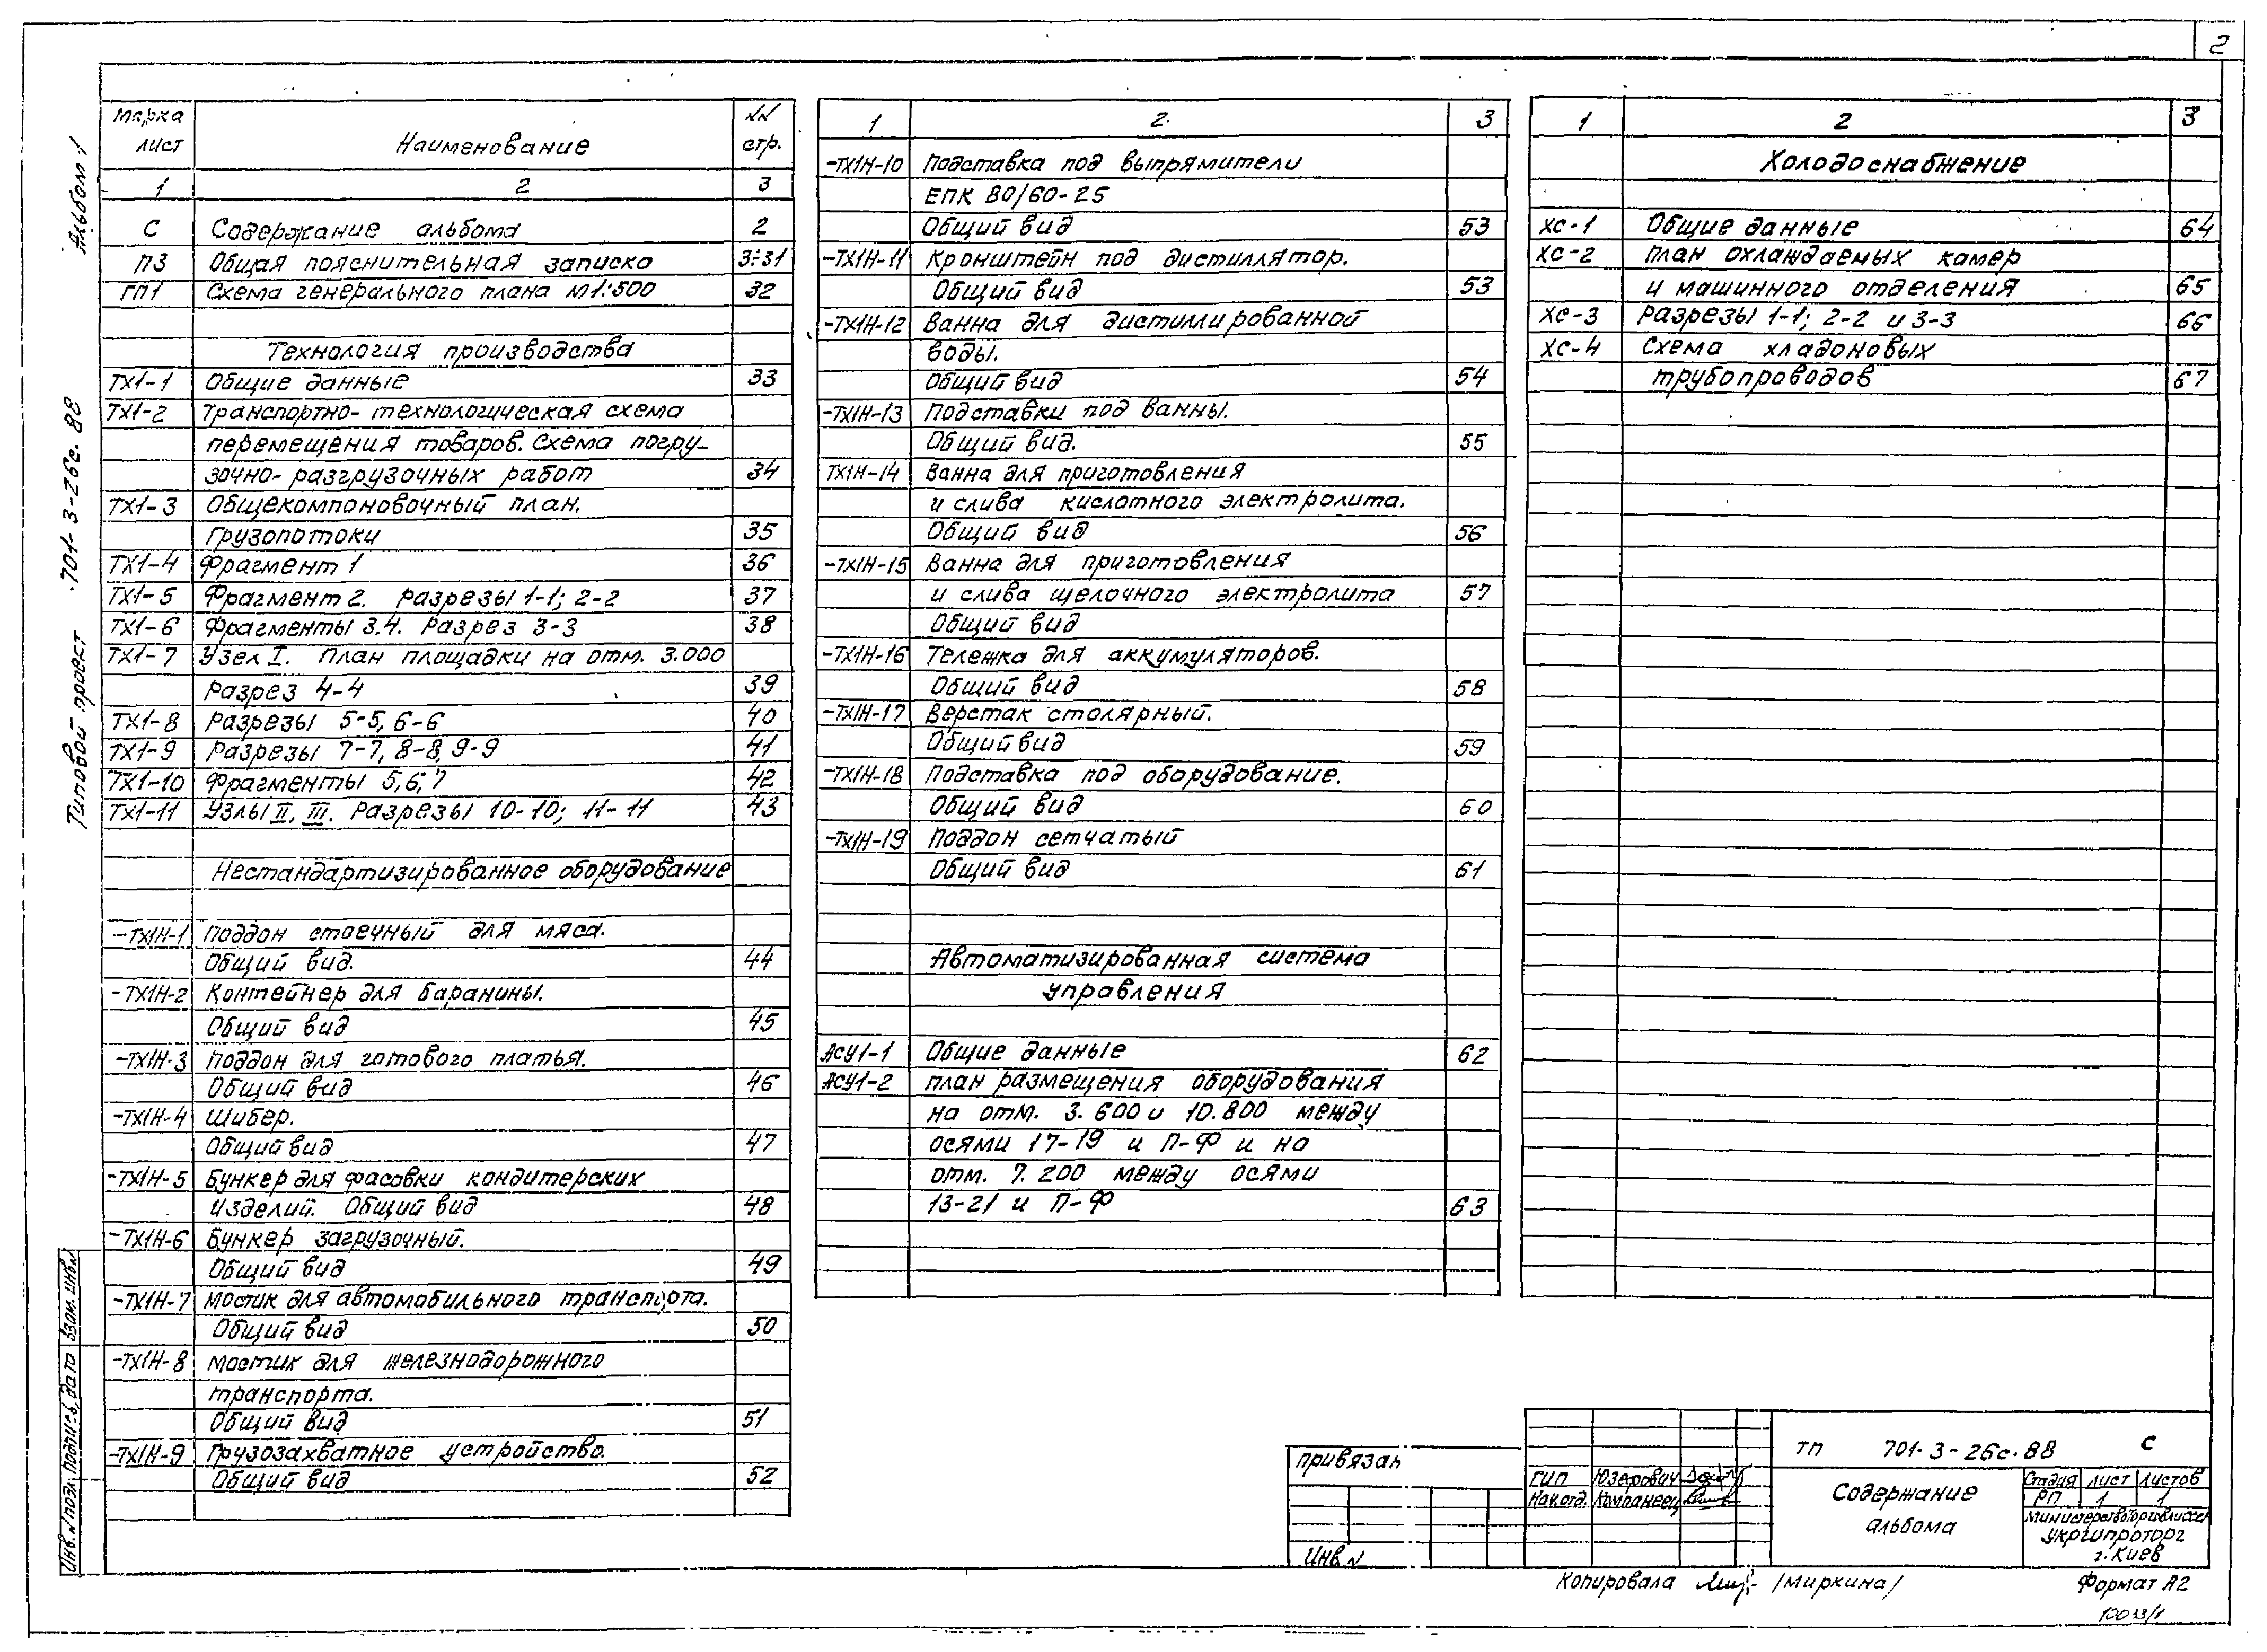 2
Альбом 1
Типовой проект 701-3-26с.88
Марка лист Наименование NN стр.
1 2 3
С Содержание альбома 2
ПЗ Общая пояснительная записка 3÷31
ГП1 Схема генерального плана М1:500 32
Технология производства
ТХ1-1 Общие данные 33
ТХ1-2 Транспортно-технологическая схема
перемещения товаров. Схема погру-
зочно-разгрузочных работ 34
ТХ1-3 Общекомпоновочный план.
Грузопотоки 35
ТХ1-4 Фрагмент 1 36
ТХ1-5 Фрагмент 2. Разрезы 1-1; 2-2 37
ТХ1-6 Фрагменты 3.4. Разрез 3-3 38
ТХ1-7 Узел I. План площадки на отм. 3.000
Разрез 4-4 39
ТХ1-8 Разрезы 5-5, 6-6 40
ТХ1-9 Разрезы 7-7, 8-8, 9-9 41
ТХ1-10 Фрагменты 5, 6, 7 42
ТХ1-11 Узлы II, III. Разрезы 10-10; 11-11 43
Нестандартизированное оборудование
-ТХ1Н-1 Поддон стоечный для мяса.
Общий вид. 44
-ТХ1Н-2 Контейнер для баранины.
Общий вид 45
-ТХ1Н-3 Поддон для готового платья.
Общий вид 46
-ТХ1Н-4 Шибер.
Общий вид 47
-ТХ1Н-5 Бункер для фасовки кондитерских
изделий. Общий вид 48
-ТХ1Н-6 Бункер загрузочный.
Общий вид 49
-ТХ1Н-7 Мостик для автомобильного транспорта.
Общий вид 50
-ТХ1Н-8 Мостик для железнодорожного
транспорта.
Общий вид 51
-ТХ1Н-9 Грузозахватное устройство.
Общий вид 52
1 2 3
-ТХ1Н-10 Подставка под выпрямители
ЕПК 80/60-25
Общий вид 53
-ТХ1Н-11 Кронштейн под дистиллятор.
Общий вид 53
-ТХ1Н-12 Ванна для дистиллированной
воды.
Общий вид 54
-ТХ1Н-13 Подставки под ванны.
Общий вид. 55
ТХ1Н-14 Ванна для приготовления
и слива кислотного электролита.
Общий вид 56
-ТХ1Н-15 Ванна для приготовления
и слива щелочного электролита 57
Общий вид
-ТХ1Н-16 Тележка для аккумуляторов.
Общий вид 58
-ТХ1Н-17 Верстак столярный.
Общий вид 59
-ТХ1Н-18 Подставка под оборудование.
Общий вид 60
-ТХ1Н-19 Поддон сетчатый
Общий вид 61
Автоматизированная система
управления
АСУ1-1 Общие данные 62
АСУ1-2 План размещения оборудования
на отм. 3.600 и 10.800 между
осями 17-19 и П-Ф и на
отм. 7.200 между осями
13-21 и П-Ф 63
1 2 3
Холодоснабжение
ХС-1 Общие данные 64
ХС-2 План охлаждаемых камер
и машинного отделения 65
ХС-3 Разрезы 1-1; 2-2 и 3-3 66
ХС-4 Схема хладоновых
трубопроводов 67
Инв.N подл. Подпись, дата Взам. инв.N
Привязан
Инв. N
ГИП Юзефович
Нач.отд. Компанеец
ТП 701-3-26с.88 С
Содержание
альбома
Стадия Лист Листов
РП 1 1
Министерство торговли СССР
Укргипроторг
г. Киев
Копировала /Миркина/
Формат А2
10033/1